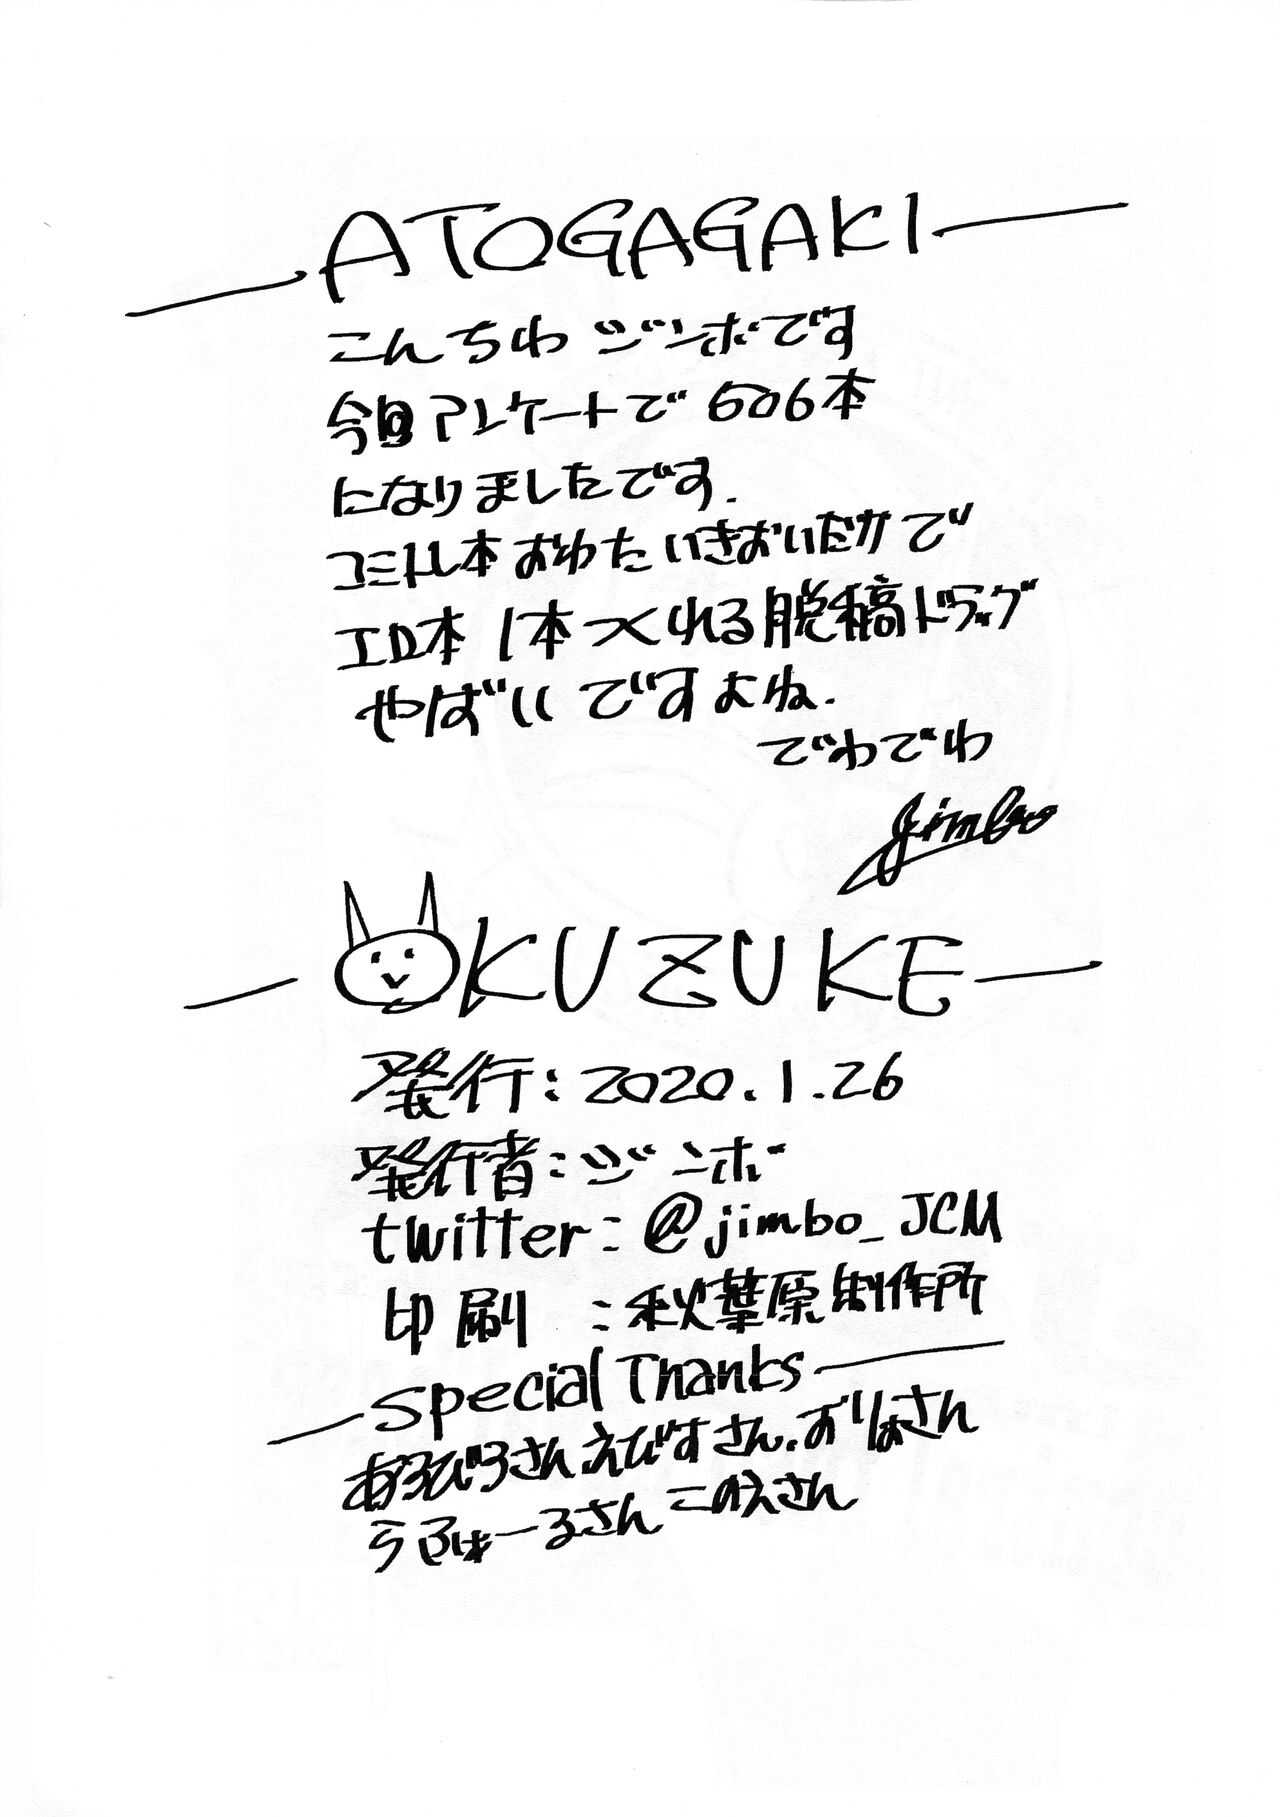 ATOGAGAKI
こんちわ ジンボです
今回アンケートで 606本
になりましたです.
コミトレ本おわたいきおいだかで
エロ本1本つくれる脱稿ドラッグ
やばいですよね.
でわでわ
jimbo
OKUZUKE
発行:2020.1.26
発行者:ジンボ
twitter:@jimbo_JCM
印刷 :秋葉原制作所
Special Thanks
あろびろさん えびすさん.おりはさん
うろはーるさん このえさん